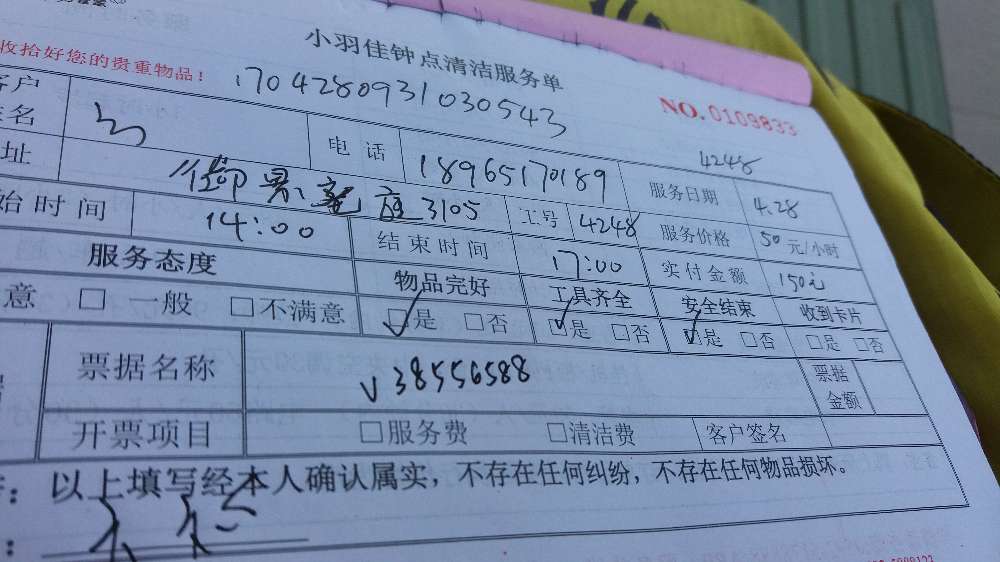 小羽佳钟点清洁服务单
收拾好您的贵重物品!
1704280931030543
NO.0109833
客户
姓名
电话 18965170189
4248
服务日期 4.28
址 御景 座3105 工号 4248 服务价格 50元/小时
始时间 14:00 结束时间 17:00 实付金额 150
服务态度 物品完好 工具齐全 安全结束 收到卡片
意 □ 一般 □不满意 □是 □否 □是 □否 □是 □否 □是 □否
票据名称 V38556588 票据金额
开票项目 □服务费 □清洁费 客户签名
以上填写经本人确认属实，不存在任何纠纷，不存在任何物品损坏。